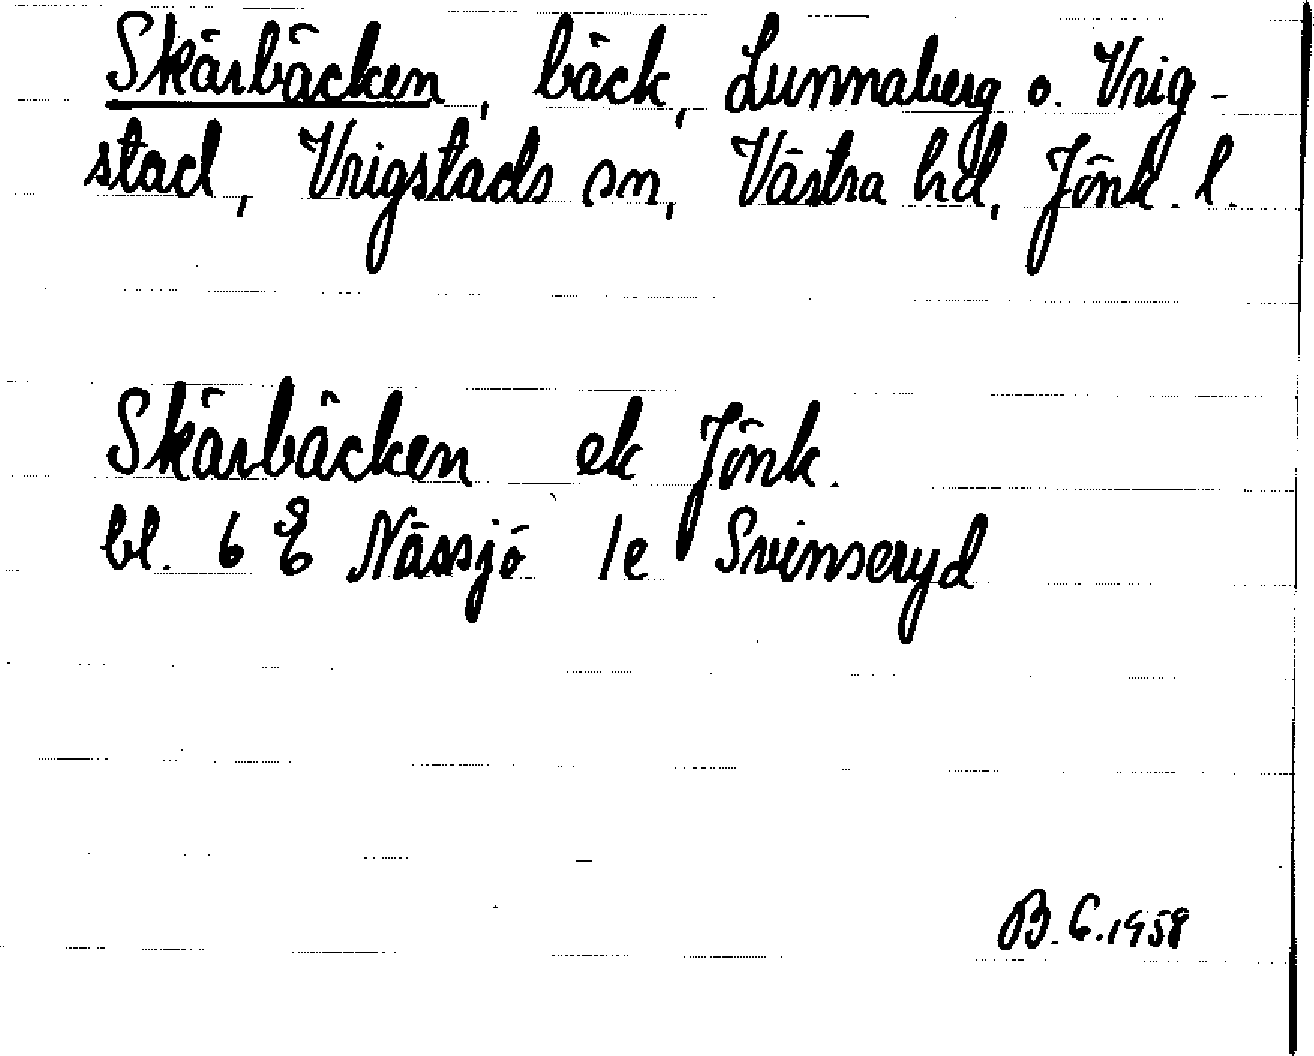 Skärbäcken, bäck, Lunnaberg o. Vrig-
stad, Vrigstads sn, Västra hd, Jönk. l.
Skärbäcken ek Jönk.
bl. 6 E Nässjö 1e Svenseryd
B. G. 1958